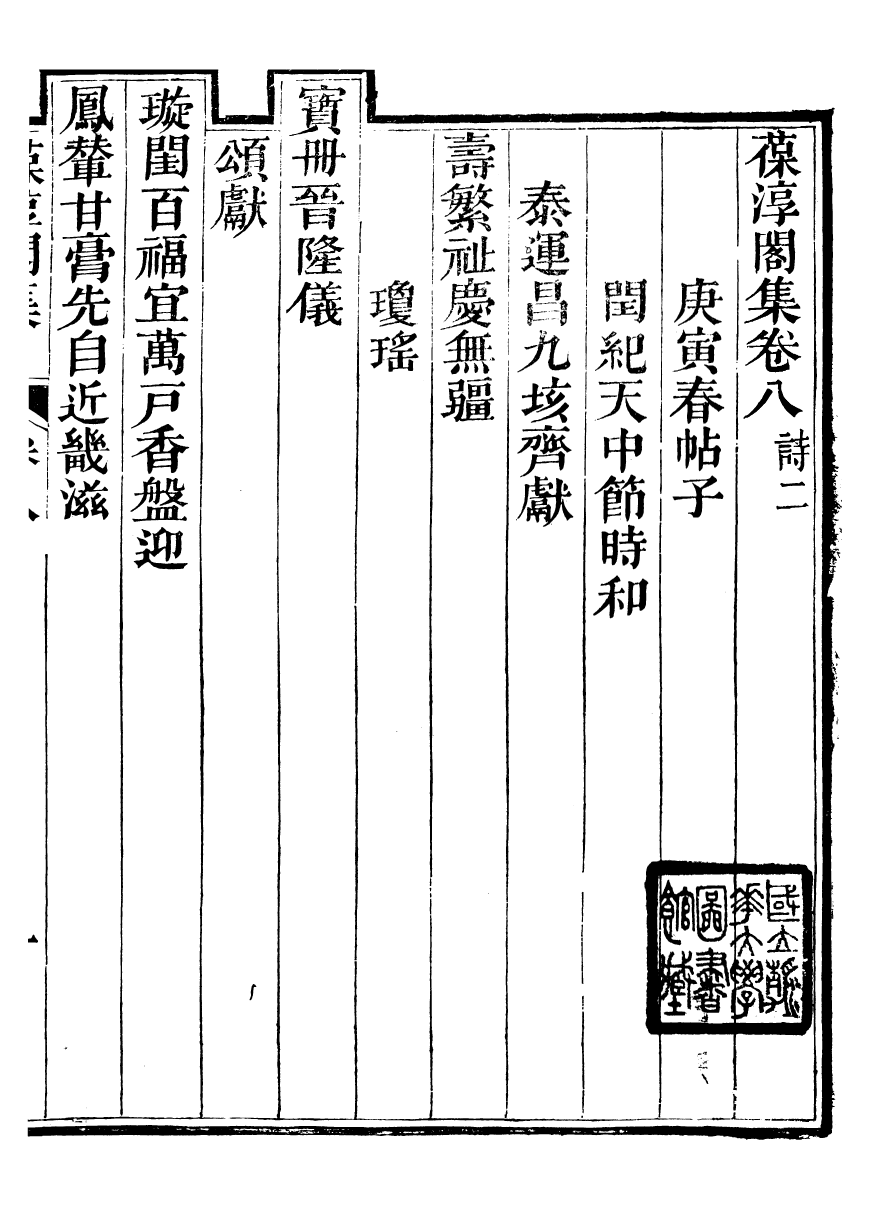 葆淳閣集卷八 詩二
庚寅春帖子
閏紀天中節時和
泰運昌九垓齊獻
壽繁祉慶無疆
瓊瑤
寶冊晉隆儀
頌獻
璇閨百福宜萬戸香盤迎
鳳輦甘膏先自近畿滋
國立清華大學圖書館藏